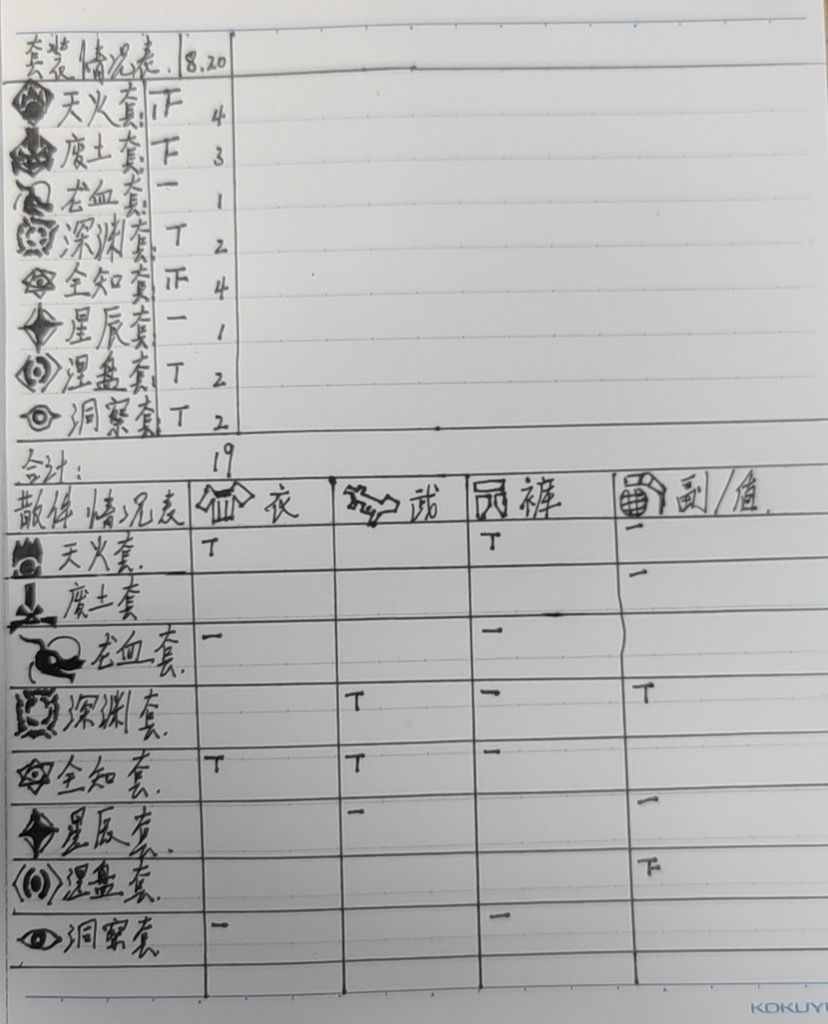 套装情况表. 8.20
天火套: 正 4
废土套: 下 3
龙血套: 一 1
深渊套: T 2
全知套: 正 4
星辰套: 一 1
涅盘套: T 2
洞察套: T 2
合计: 19
散件情况表 衣 武 裤 副/值.
天火套. T T 一
废土套 一
龙血套. 一 一
深渊套. T 一 T
全知套. T T 一
星辰套. 一 一
涅盘套. 下
洞察套 一 一
KOKUY